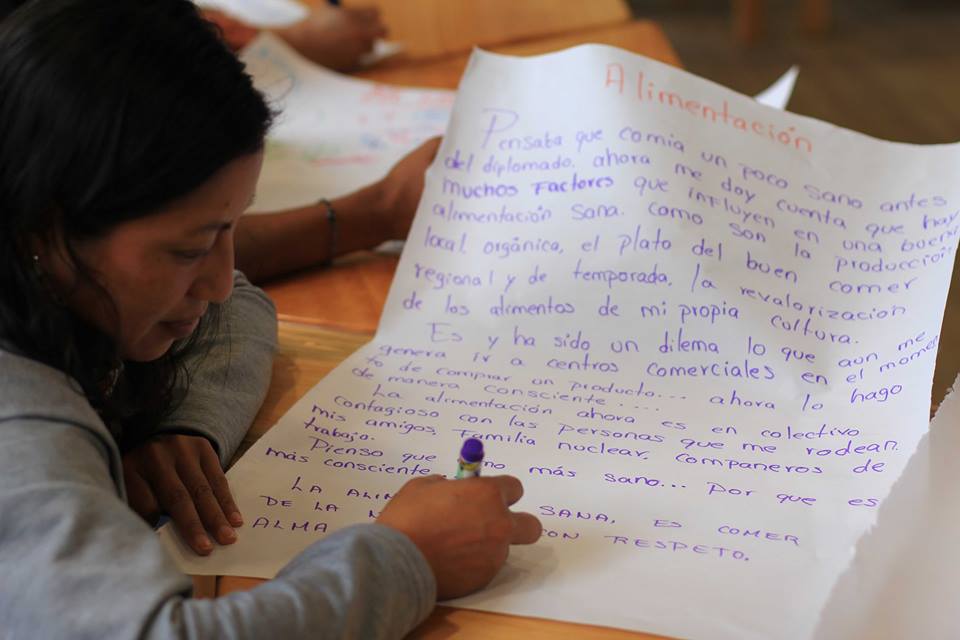 Alimentación
Pensaba que comia un poco sano antes
del diplomado. ahora me doy cuenta que hay
muchos Factores que influyen en una buena
alimentación sana. como son la producción
local, orgánica, el plato del buen comer
regional y de temporada, la revalorización
de los alimentos de mi propia cultura.
Es y ha sido un dilema lo que aun me
genera ir a centros comerciales en el momen
to de comprar un producto... ahora lo hago
de manera consciente....
La alimentación ahora es en colectivo
contagioso con las personas que me rodean.
mis amigos, Familia nuclear, compañeros de
trabajo.
Pienso que más sano... Por que es
más consciente
LA SANA, ES COMER
DE LA CON RESPETO.
ALMA